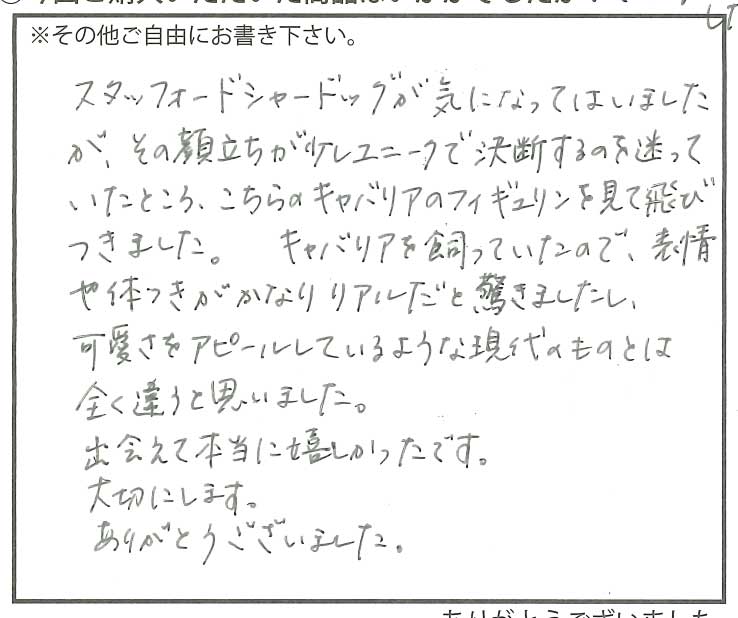 ※その他ご自由にお書き下さい。
スタッフォードシャードッグが気になってはいました
が、その顔立ちが少しユニークで決断するのを迷って
いたところ、こちらのキャバリアのフィギュリンを見て飛び
つきました。 キャバリアを飼っていたので、表情
や体つきがかなりリアルだと驚きましたし、
可愛さをアピールしているような現代のものとは
全く違うと思いました。
出会えて本当に嬉しかったです。
大切にします。
ありがとうございました。